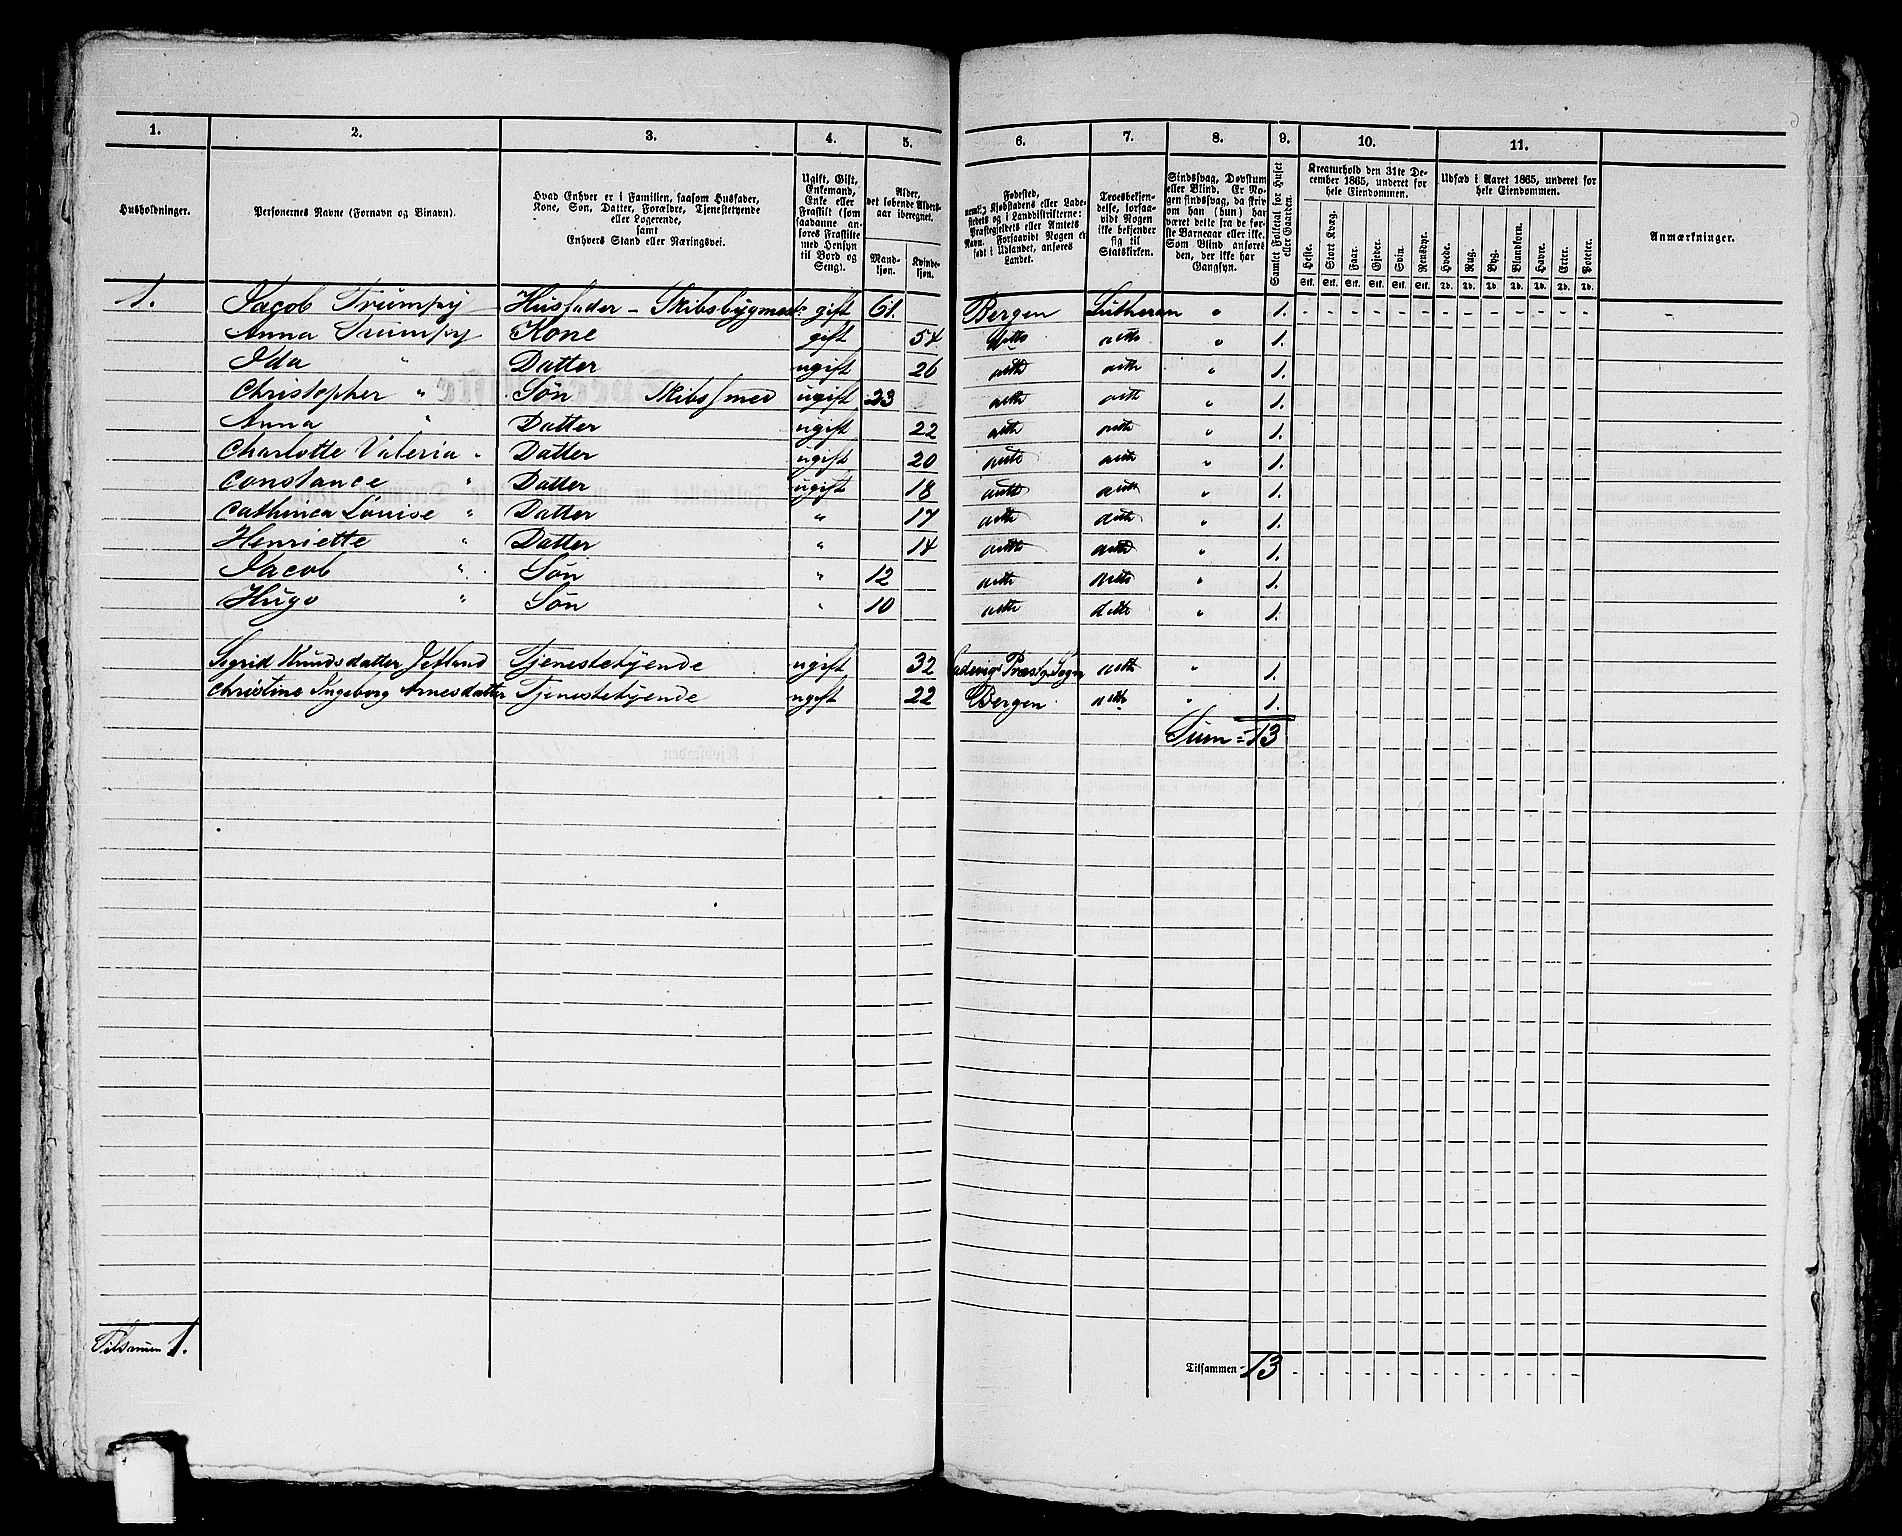 1. 2. 3. 4. 5. 6. 7. 8. 9. 10. 11.
Husholdninger.
Personernes Navne (Fornavn og Binavn).
Hvad Enhver er i Familien, saasom Husfader,
Kone, Søn, Datter, Forældre, Tjenestetyende
eller Logerende,
samt
Enhvers Stand eller Næringsvei.
Ugift, Gift,
Enkemand,
Enke eller
Fraskilt (som
saadanne an-
føres Fraskilte
med Hensyn
til Bord og
Seng).
Alder,
det løbende Alders-
aar iberegnet.
Mand-
kjøn.
Kvinde-
kjøn.
Fødested,
nemlig Kjøbstadens eller Lade-
stedets og i Landdistrikterne:
Præstegjeldets eller Amtets
Navn. Forsaavidt Nogen er
født i Udlandet, anføres
Landet.
Troesbekjen-
delse, forsaa-
vidt Nogen
ikke bekjender
sig til
Statskirken.
Sindssvag, Døvstum
eller Blind. Er No-
gen sindssvag, da skriv
om han (hun) har
været dette fra de før-
ste Barneaar eller ikke.
Som Blind anføres
den, der ikke har
Gangsyn.
Samlet Folketal for Huset
eller Gaarden.
Kreaturhold den 31te De-
cember 1865, underet for
hele Eiendommen.
Heste. Stort Kvæg. Faar. Gjeder. Svin. Rensdyr.
Stk. Stk. Stk. Stk. Stk. Stk.
Udsæd i Aaret 1865, underet for
hele Eiendommen.
Hvede. Rug. Byg. Blandkorn. Havre. Erter. Poteter.
Td. Td. Td. Td. Td. Td. Td.
Anmærkninger.
1. Jacob Trumpy Husfader - Skibsbygmest: gift 61 Bergen Lutheran " 1. - - - - - - - - - - - - -
Anna Trumpy Kone gift 54 ditto ditto " 1.
Ida " Datter ugift 26 ditto ditto " 1.
Christopher " Søn Skibssmed ugift 23 ditto ditto " 1.
Anna " Datter ugift 22 ditto ditto " 1.
Charlotte Valeria " Datter ugift 20 ditto ditto " 1.
Constance " Datter ugift 18 ditto ditto " 1.
Cathinca Louise " Datter " 17 ditto ditto " 1.
Henriette " Datter " 14 ditto ditto " 1.
Jacob " Søn " 12 ditto ditto " 1.
Hugo " Søn " 10 ditto ditto " 1.
Sigrid Knudsdatter Tjenestetyende ugift 32 Sogn ditto " 1.
Christine Ingeborg Arnesdatter Tjenestetyende ugift 22 Bergen ditto " 1.
Sum = 13
Tilsammen 1.
Tilsammen 13 - - - - - - - - - - - - -